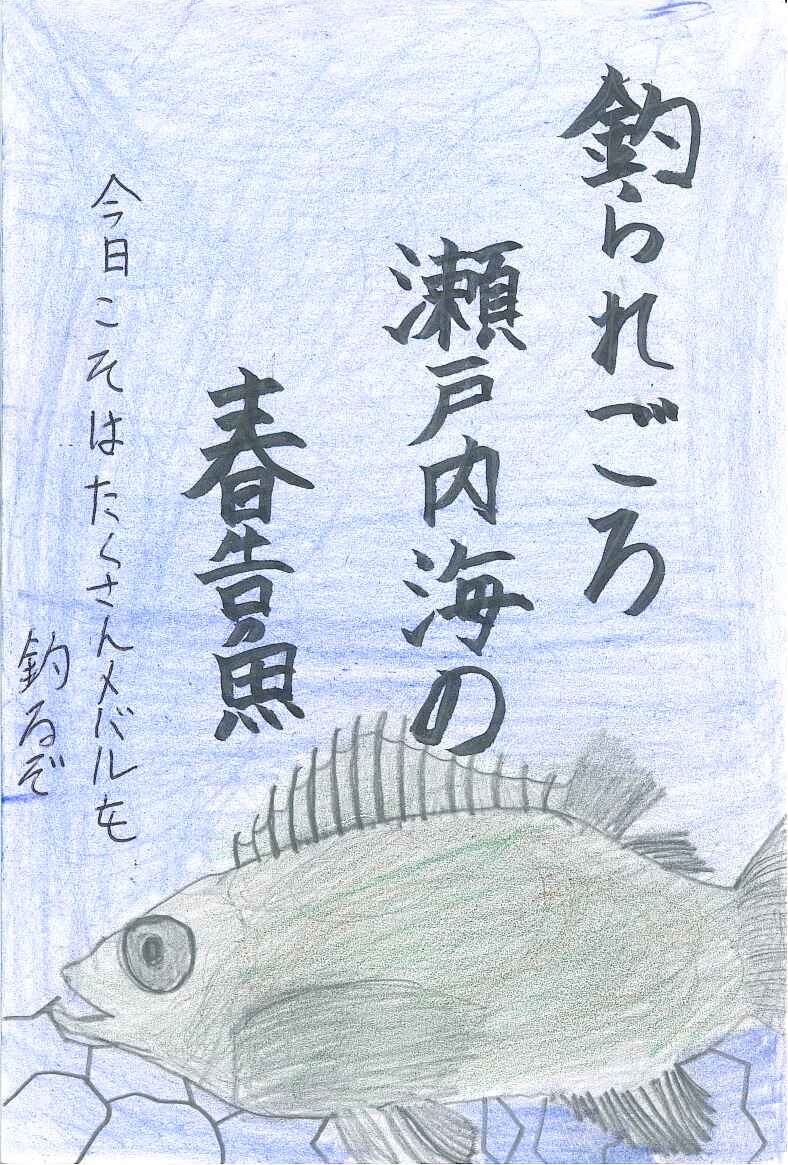 釣られごろ
瀬戸内海の
春告の魚
今日こそはたくさんメバルを
釣るぞ